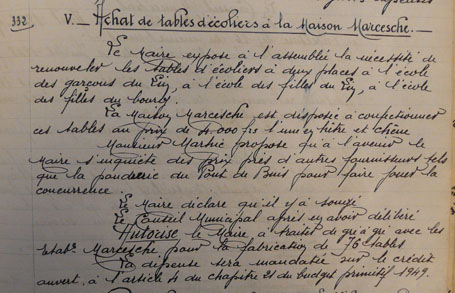 332 V._ Achat de tables d'écoliers à la Maison Marcesche._
Le Maire expose à l'assemblée la nécessité de
renouveler les tables d'écoliers à deux places à l'école
des garçons du à l'école des filles du à l'école
des filles du bourg.
La Maison Marcesche est disposée à confectionner
ces tables au prix de 4.000 frs l'une en hêtre et chêne
Monsieur propose qu'à l'avenir le
Maire s'inquiète des prix près d'autres fournisseurs tels
que la poudrerie du Pont de Buis pour faire jouer la
concurrence.
Le Maire déclare qu'il y a songé.
Le Conseil Municipal après en avoir délibéré
Autorise le Maire, à traiter de gré à gré avec les
Etabts Marcesche pour la fabrication de 76 tables
La dépense sera mandatée sur le crédit
ouvert, à l'article 4 du chapitre 21 du budget primitif 1949.